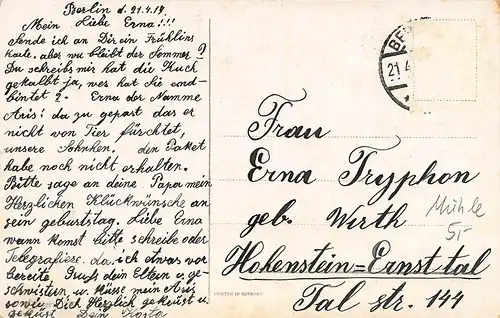 Berlin d. 21.4.19.
Mein Liebe Erna!!!
Sende ich an Dir ein Frühlins
karte. aber wo bleibt der Sommer?
Du schreibs mir hat die Kuch
gekalbt ja, wer hat Sie ond-
bintet?. Erna der Namme
Aris! da zu gepart das er
nicht von Tier fürschtet,
unsere Söhnken. den Paket
habe noch nicht erhalten.
Bitte sage an deine Papa mein
Herzlichen Klickwünsche an
sein geburtstag. Liebe Erna
wann komst bitte schreibe oder
Telegrafiere. da, ich etwas vor
bereite. Gruß dein Eltern u. ge-
schwistern u. Küsse mein Aris
sowie Dich Herzlich geküst u.
geküst Dein
BE
21.4
Frau
Erna Tryphon
geb. Wirth
Hohenstein=Ernsttal
Tal str. 144
Mühle
5,-
PRINTED IN GERMANY